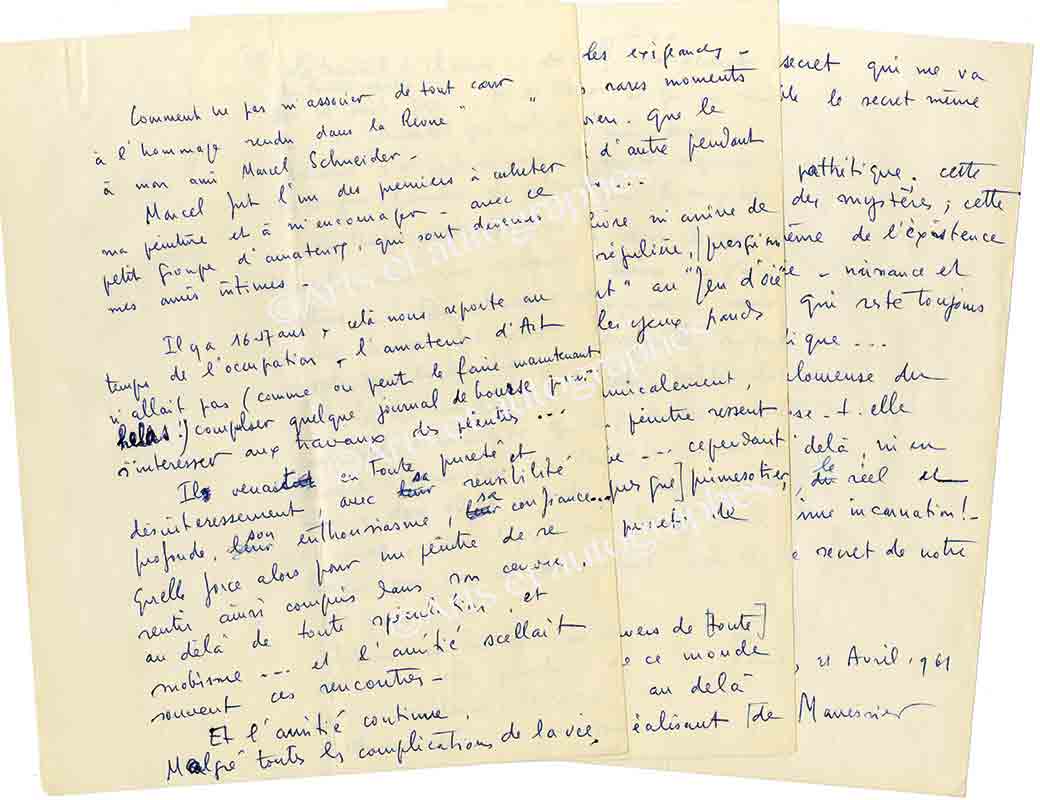 Comment ne pas m'associer de tout cœur
à l'hommage rendu dans la Revue " "
à mon ami Marcel Schneider -
Marcel fut l'un des premiers à acheter
ma peinture et à m'encourager - avec ce
petit groupe d'amateurs, qui sont devenus
mes amis intimes -
Il y a 16-17 ans, celà nous reporte au
temps de l'occupation, l'amateur d'Art
n'allait pas (comme on peut le faire maintenant
helas!) compulser quelque journal de bourse pour
s'interesser aux travaux des peintres ...
Il venait en toute pureté et
désinteressement, avec sa sensibilité
profonde, son enthousiasme, sa confiance...
Quelle force alors pour un peintre de se
sentir ainsi compris dans son œuvre,
au délà de toute spéculation et
snobisme --- et l'amitié scellait
souvent ces rencontres -
Et l'amitié continue.
Malgré toutes les complications de la vie,
les exigeances -
rares moments
bien. que le
d'autre pendant
m'arrive de
régulière,
au "Jeu d'oie"
les yeux
amicalement,
peintre ressent
cependant
primesautier,
de
[toute]
ce monde
au delà
réalisant [de
secret qui me va
le secret même
pathétique. cette
des mystères; cette
de l'éxistence
- naissance et
qui reste toujours
...
du
- t. elle
delà, ni en
le réel et
incarnation! -
secret de notre
, 21 Avril, 1961
Manessier
©Arts et autographes
©Arts et autographes
©Arts et autographes